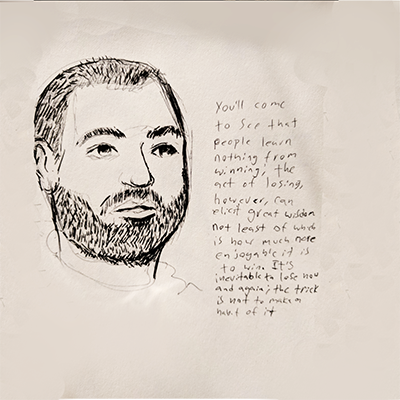 You'll come
to see that
people learn
nothing from
winning; the
act of losing,
however, can
elicit great wisdom
not least of which
is how much more
enjoyable it is
to win. It's
inevitable to lose now
and again; the trick
is not to make a
habit of it